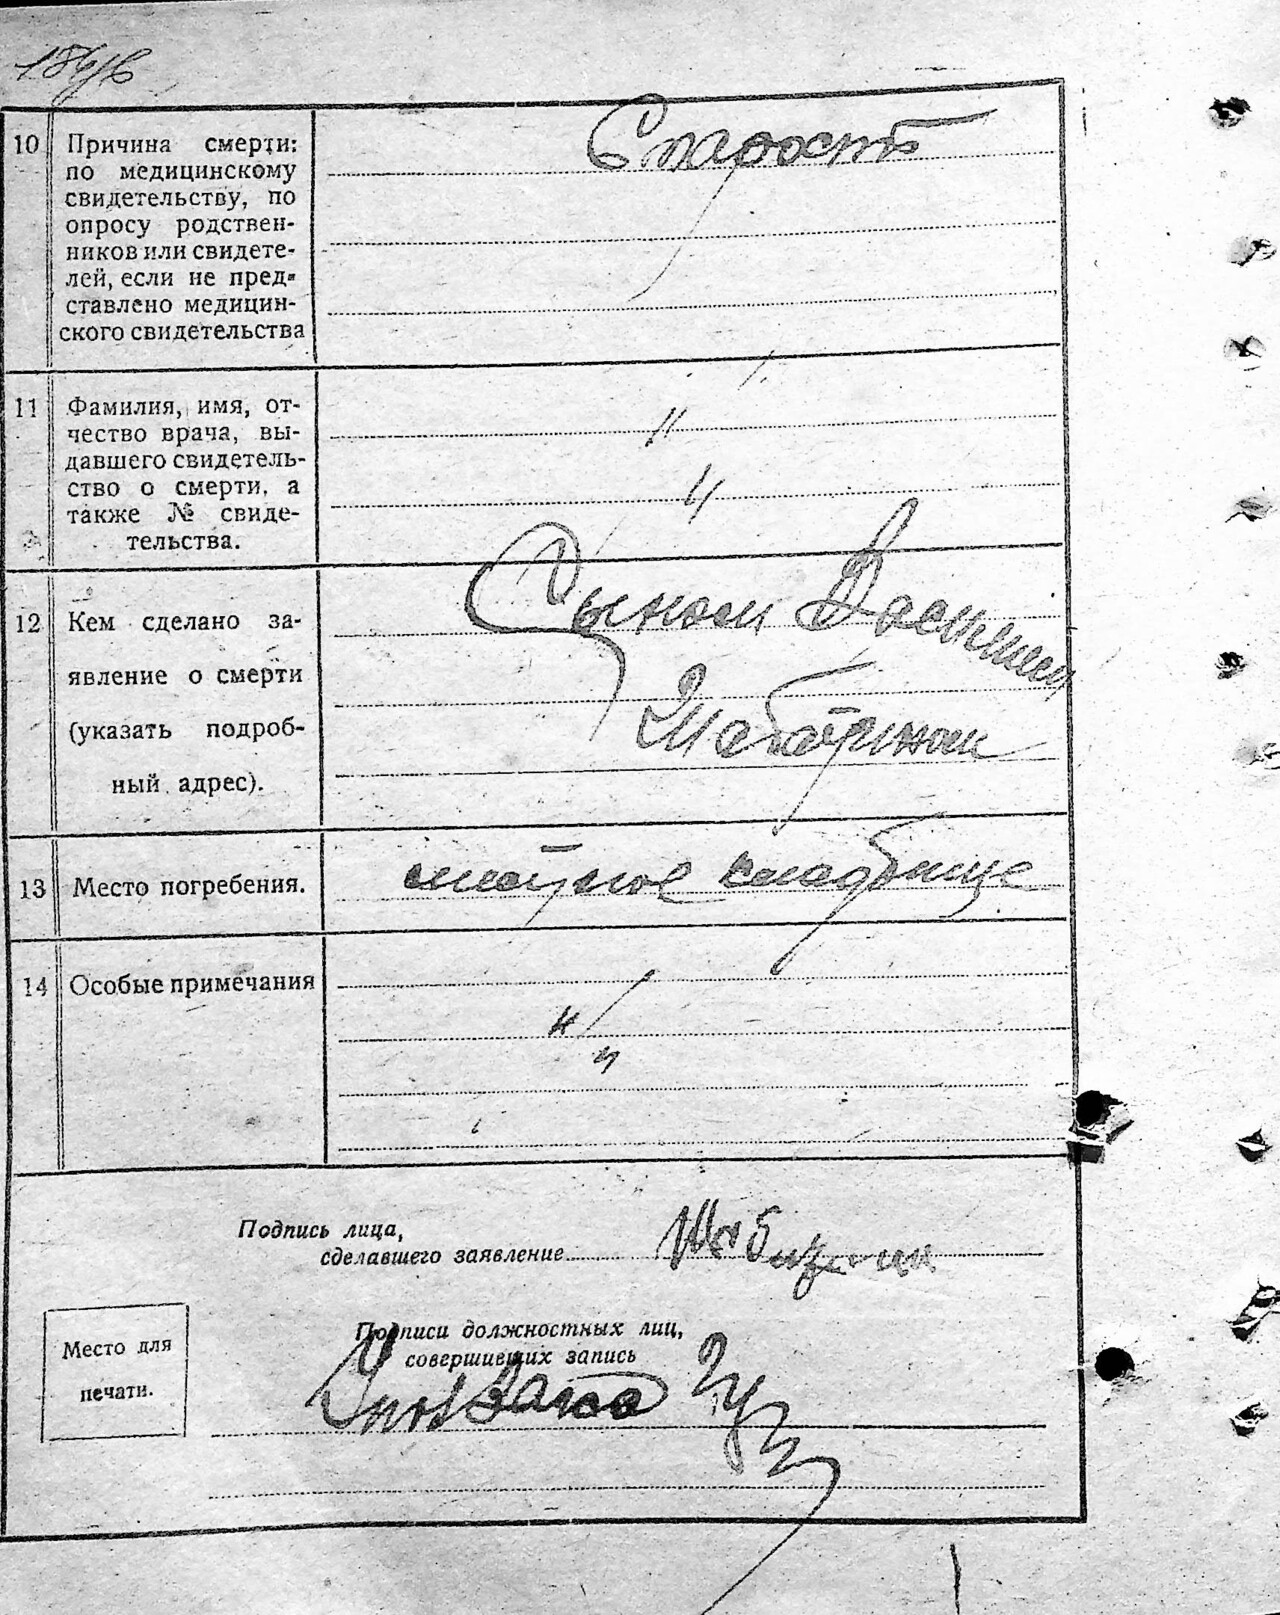 10 Причина смерти:
по медицинскому
свидетельству, по
опросу родствен-
ников или свидете-
лей, если не пред-
ставлено медицин-
ского свидетельства
Старость
11 Фамилия, имя, от-
чество врача, вы-
давшего свидетель-
ство о смерти, а
также № свиде-
тельства.
"
"
12 Кем сделано за-
явление о смерти
(указать подроб-
ный адрес).
Сыном Василием
13 Место погребения.
кладбище
14 Особые примечания
"
"
Подпись лица,
сделавшего заявление
Место для
печати.
Подписи должностных лиц,
совершивших запись